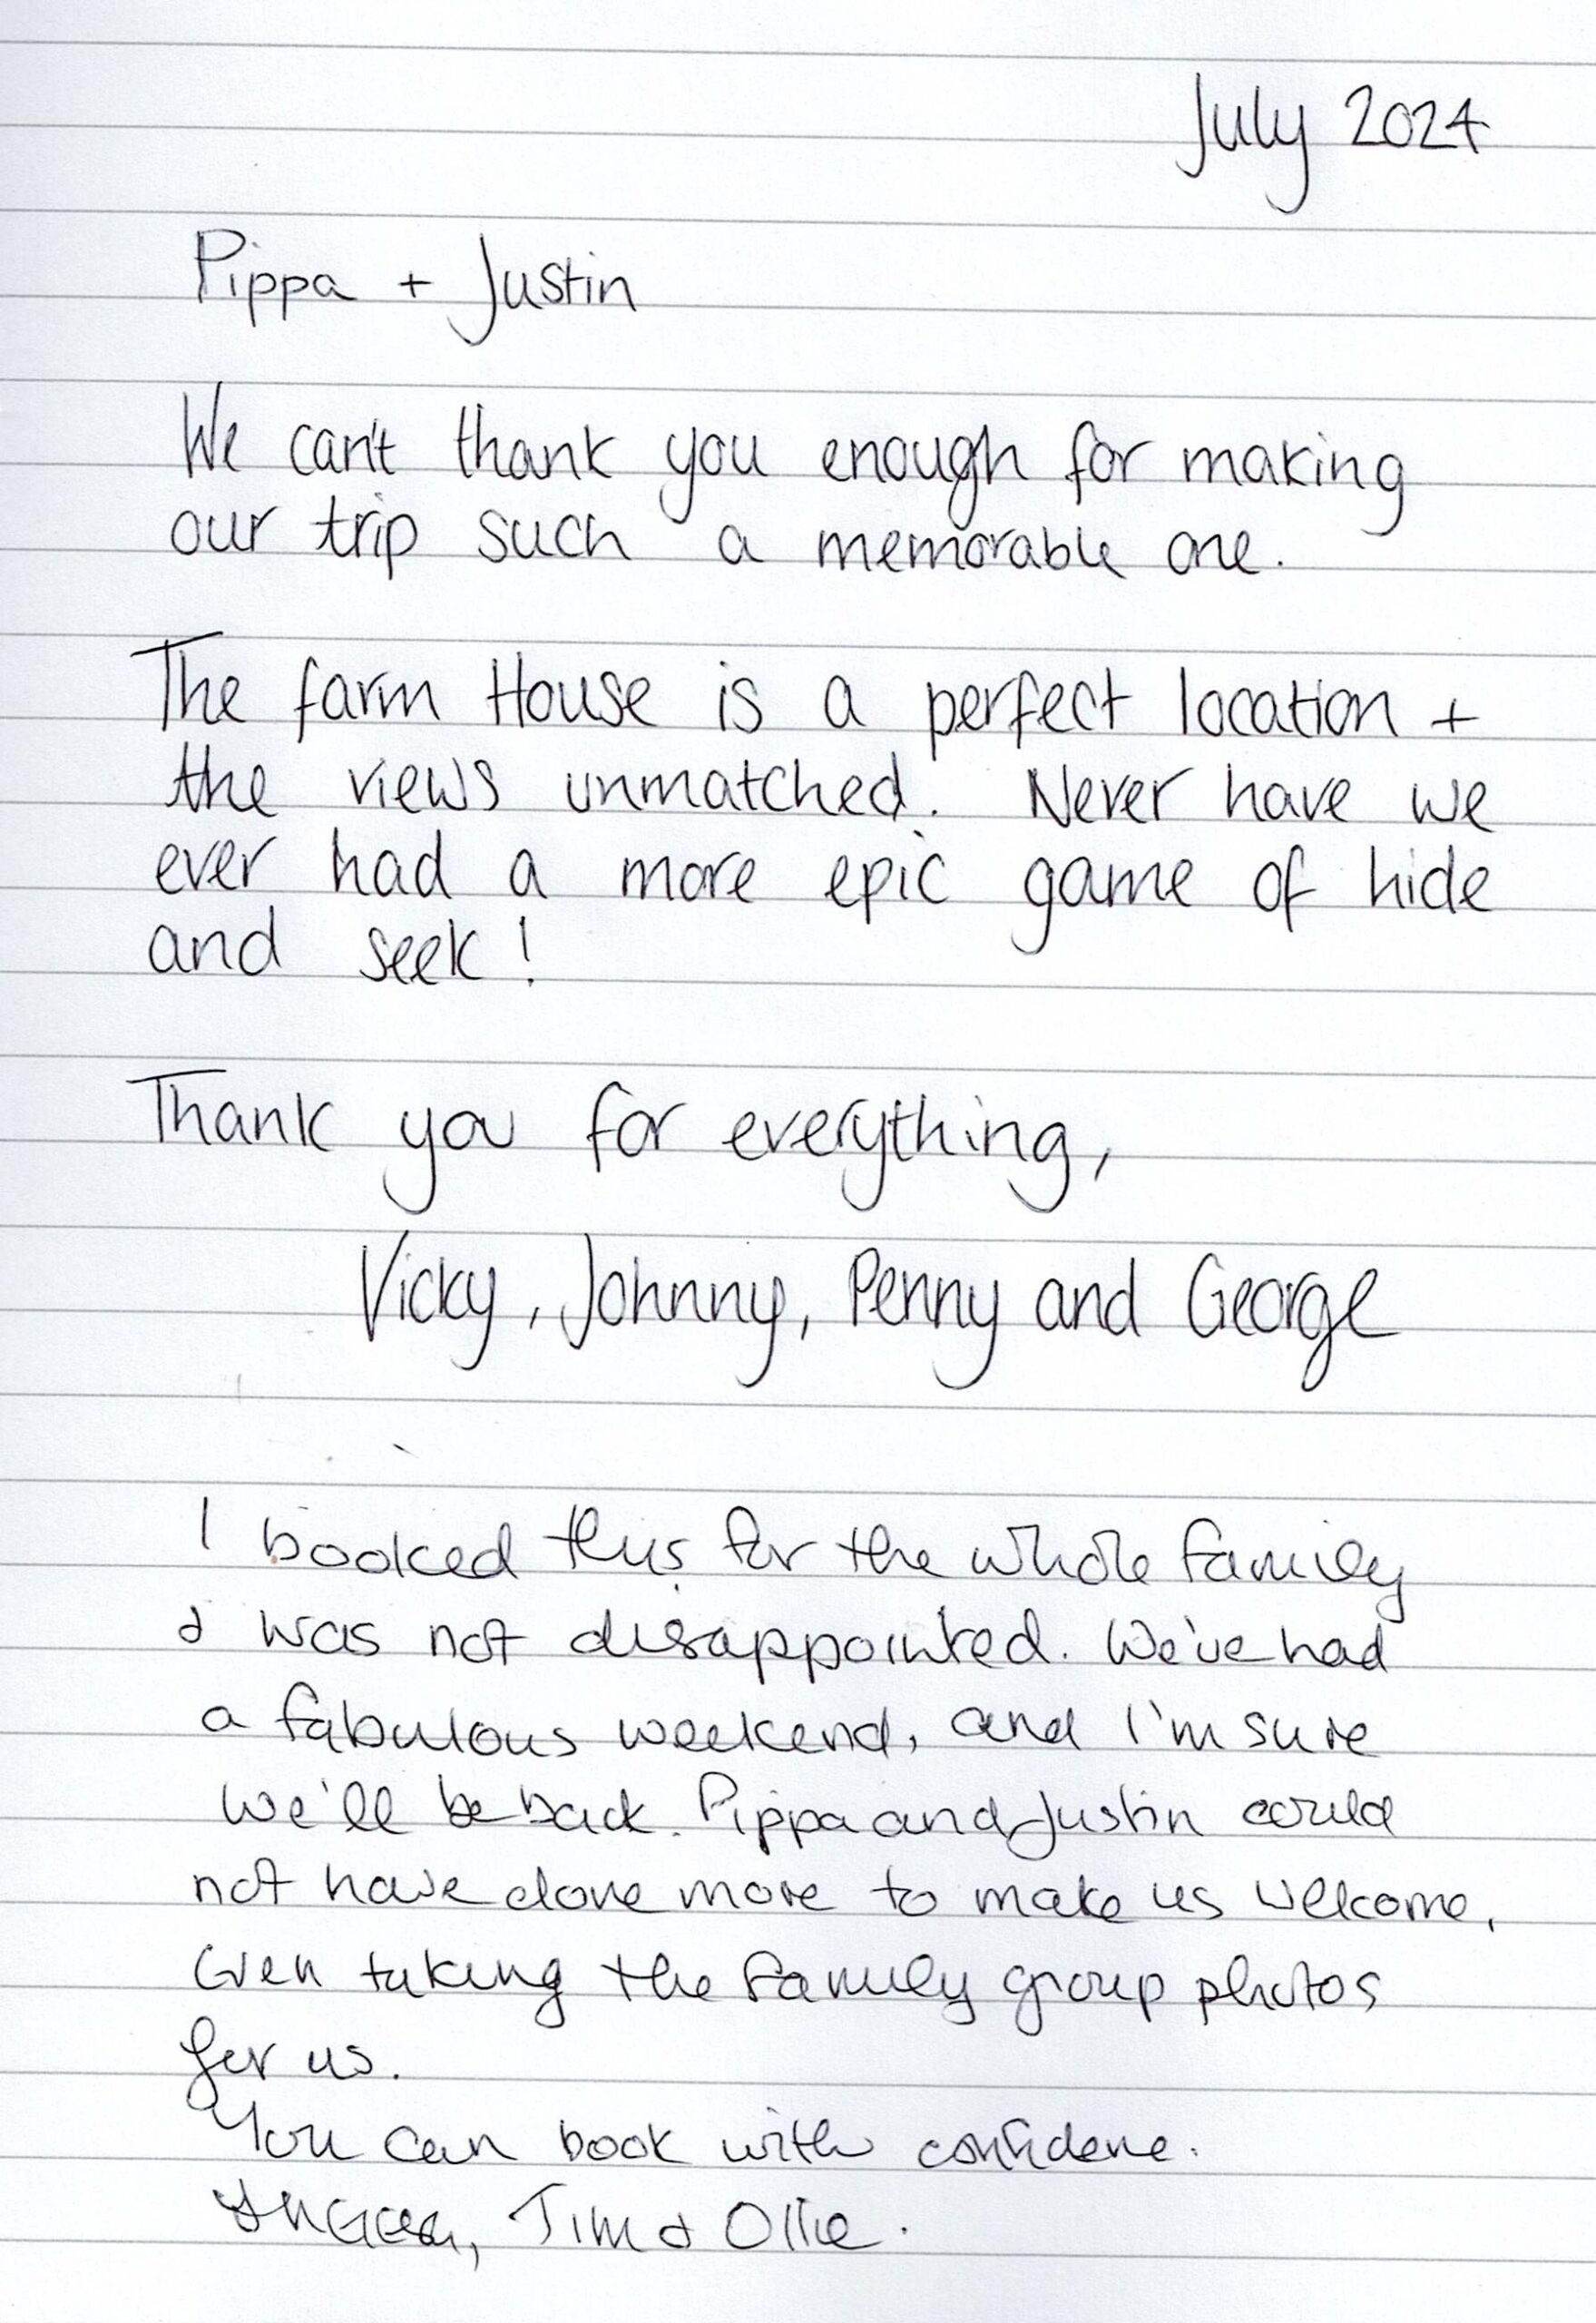 July 2024
Pippa + Justin
We can't thank you enough for making
our trip such a memorable one.
The farm House is a perfect location +
the views unmatched. Never have we
ever had a more epic game of hide
and seek!
Thank you for everything,
Vicky, Johnny, Penny and George
I booked this for the whole family
& was not disappointed. We've had
a fabulous weekend, and I'm sure
we'll be back. Pippa and Justin could
not have done more to make us welcome,
even taking the family group photos
for us.
You can book with confidence.
Tim & Ollie.